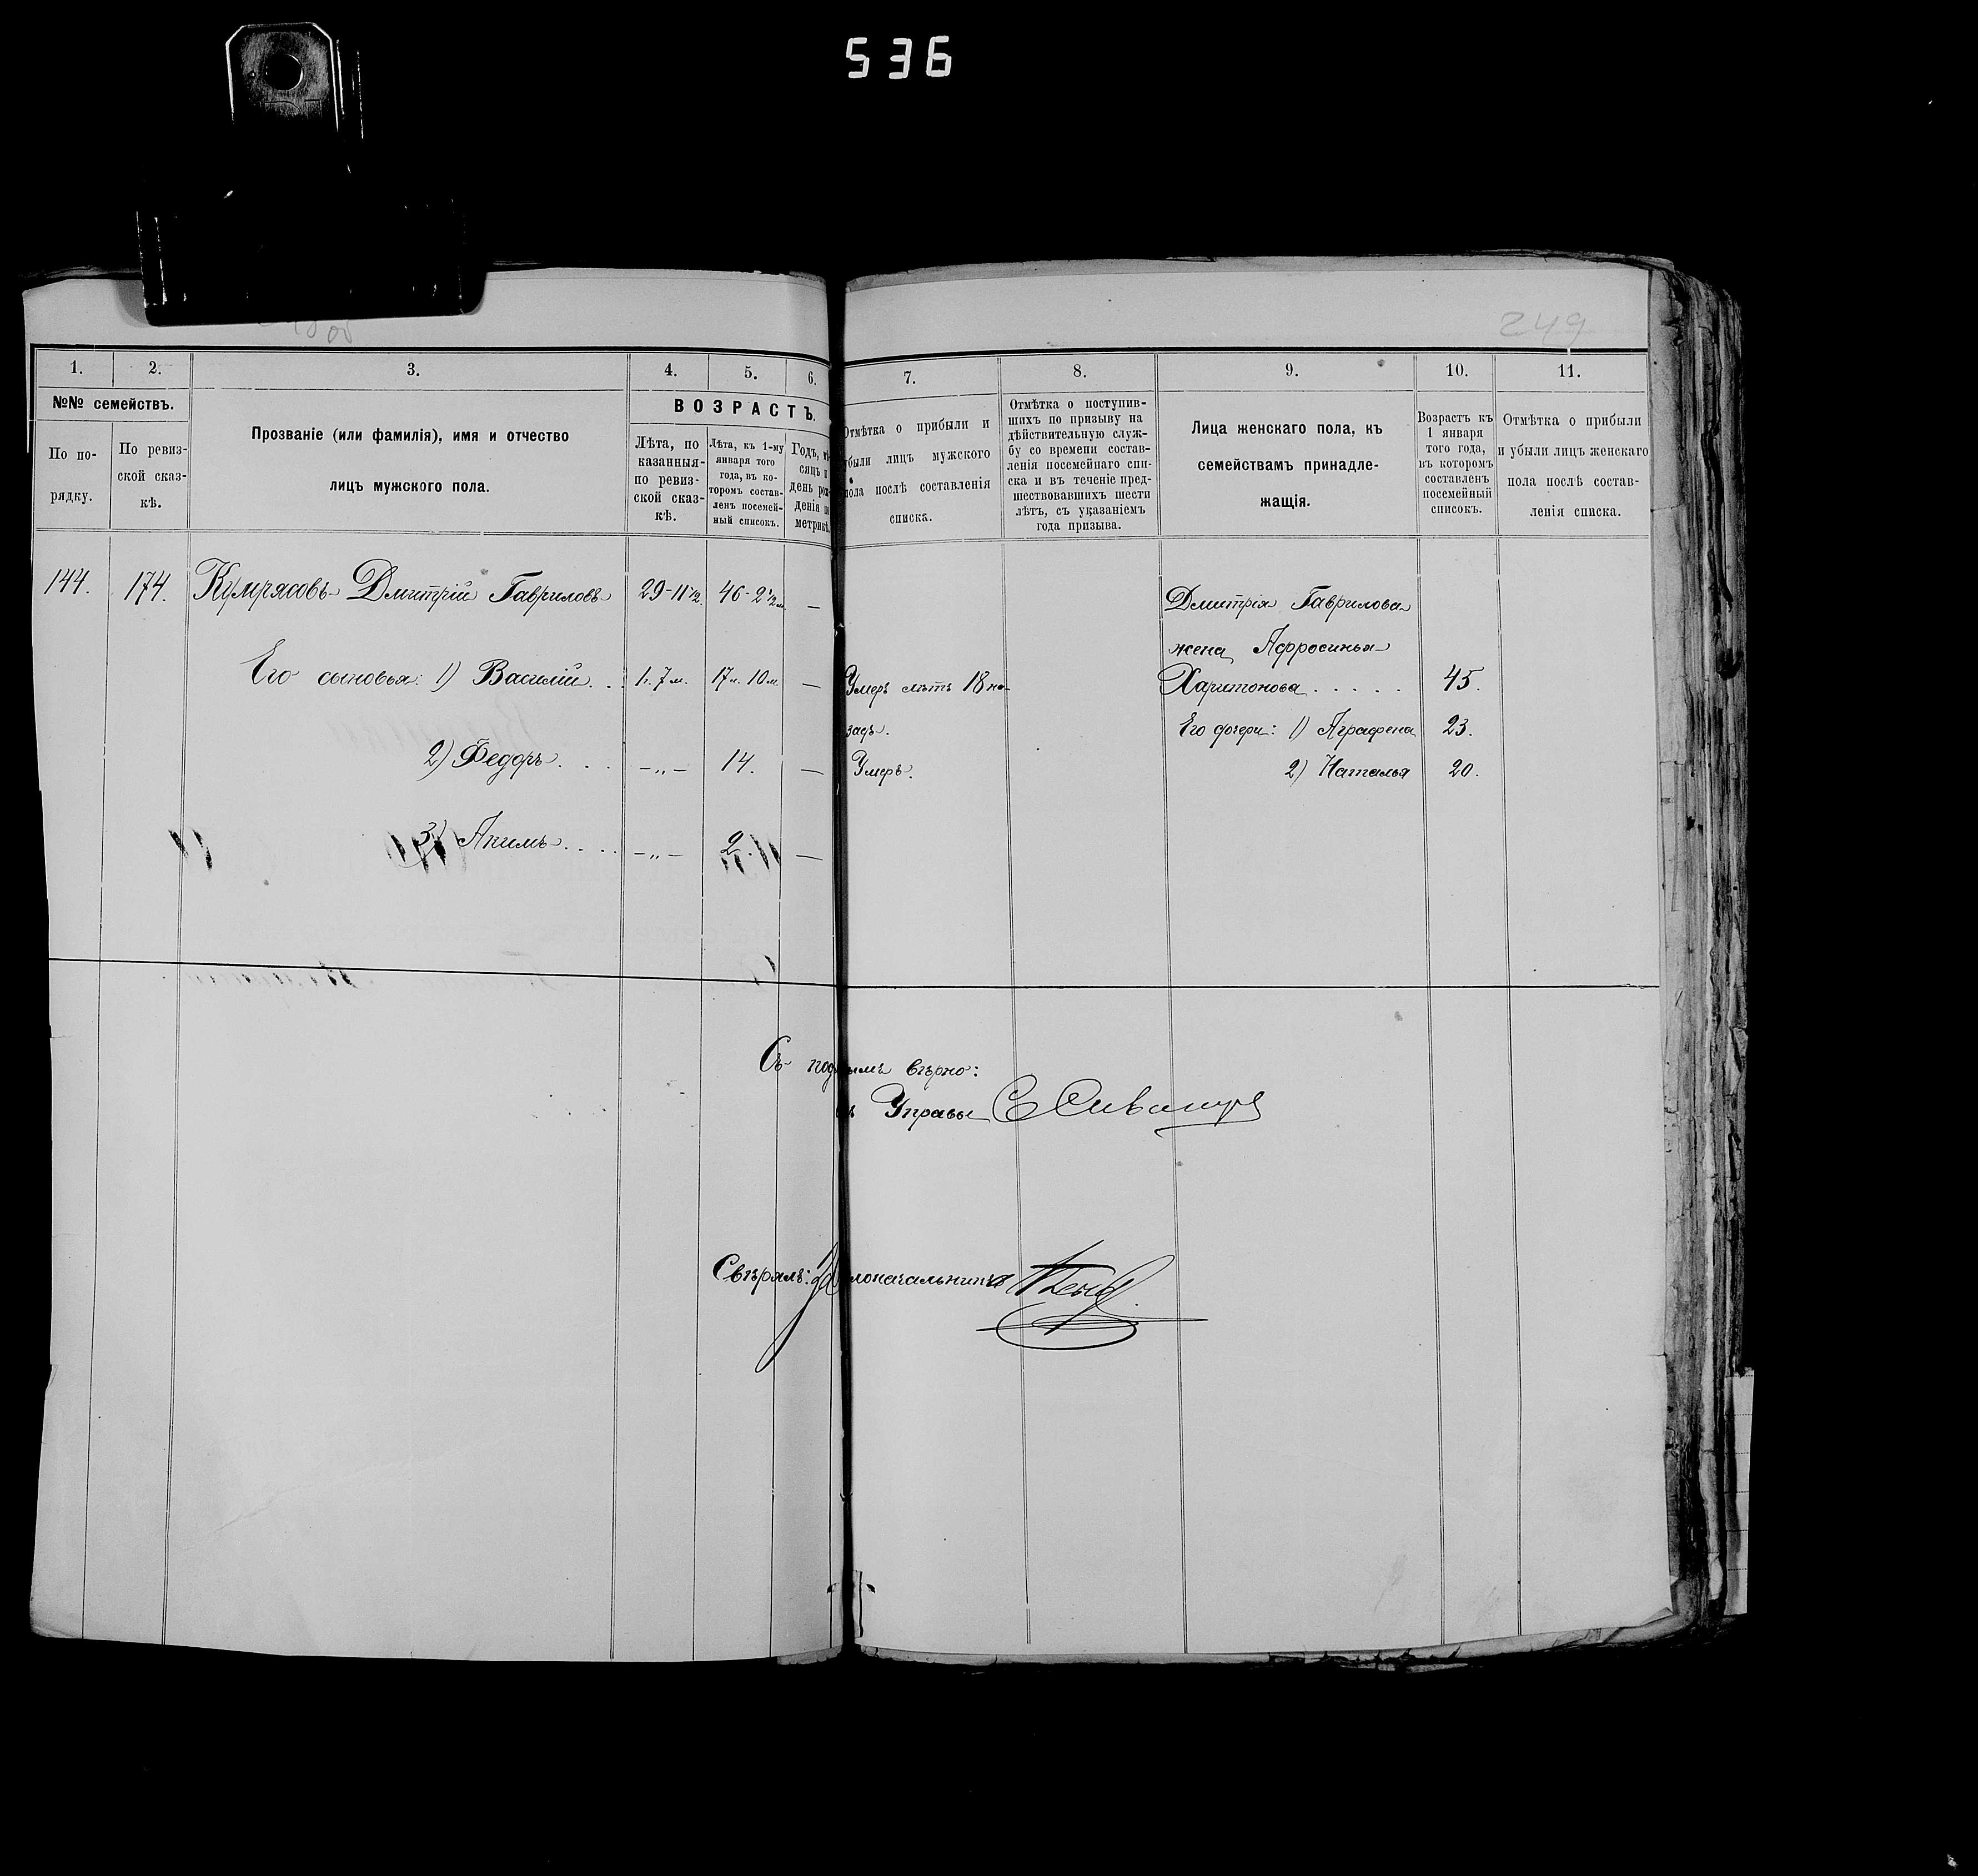 536
249
1.
2.
3.
4.
5.
6.
7.
8.
9.
10.
11.
№№ семействъ.
По по-
рядку.
По ревиз-
ской сказ-
кѣ.
Прозваніе (или фамилія), имя и отчество
лицъ мужского пола.
ВОЗРАСТЪ.
Лѣта, по
казанныя
по ревиз-
ской сказ-
кѣ.
Лѣта, къ 1-му
января того
года, въ ко-
торомъ состав-
ленъ посемей-
ный списокъ.
Годъ,
сяцъ и
день
денія
метрикѣ.
Отмѣтка о прибыли и
были лицъ мужского
пола послѣ составленія
списка.
Отмѣтка о поступив-
шихъ по призыву на
дѣйствительную служ-
бу со времени состав-
ленія посемейнаго спи-
ска и въ теченіе пред-
шествовавшихъ шести
лѣтъ, съ указаніемъ
года призыва.
Лица женскаго пола, къ
семействамъ принадле-
жащія.
Возрастъ къ
1 января
того года,
въ которомъ
составленъ
посемейный
списокъ.
Отмѣтка о прибыли
и убыли лицъ женскаго
пола послѣ состав-
ленія списка.
144. 174. Кумрясовъ Дмитрій Гавриловъ 29-11½. 46-2½ м. —
Его сыновья: 1) Василій . . . 1. 7 м. 17 л. 10 м. — Умеръ лѣтъ 18 на-
задъ.
2) Федоръ . . . —„— 14. — Умеръ.
3) Акимъ . . . . —„— 2. —
Дмитрія Гаврилова
жена Афросинья
Харитонова . . . . . 45.
Его дочери: 1) Аграфена 23.
2) Наталья 20.
Съ под ымъ вѣрно:
Управы
Свѣрялъ: Дѣлоначальникъ